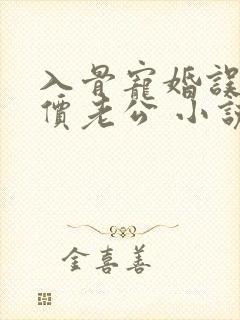 入骨寵婚誤
價老公 小說
金喜善